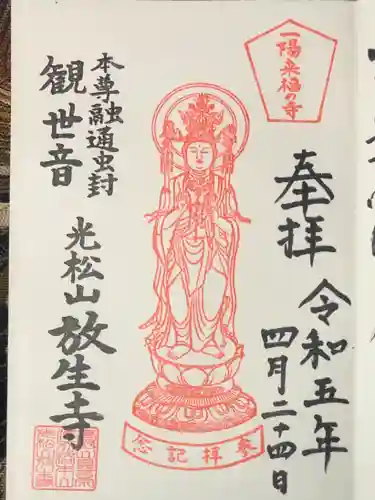 一陽来福の寺
奉拝
令和五年
四月二十四日
本尊融通虫封
観世音
光松山放生寺
参拝記念